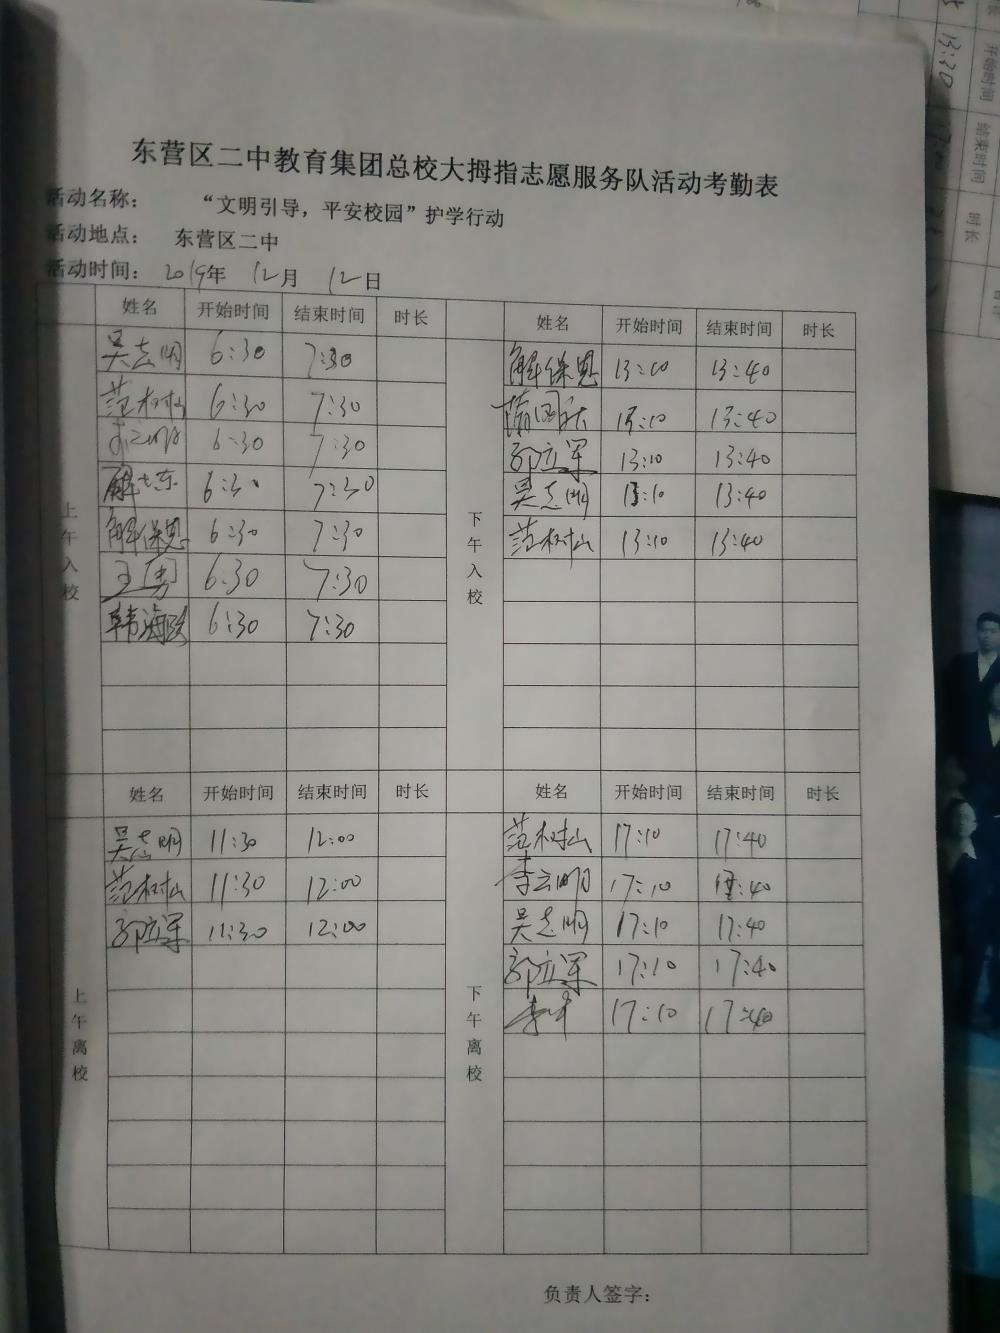 东营区二中教育集团总校大拇指志愿服务队活动考勤表
活动名称： “文明引导，平安校园”护学行动
活动地点： 东营区二中
活动时间：2019年 12月 12日
姓名 开始时间 结束时间 时长 姓名 开始时间 结束时间 时长
上午入校
吴志明 6:30 7:30
范树山 6:30 7:30
李云明 6:30 7:30
解 东 6:30 7:30
解保恩 6:30 7:30
王勇 6:30 7:30
韩海 6:30 7:30
下午入校
解保恩 13:10 13:40
13:10 13:40
郭立军 13:10 13:40
吴志明 13:10 13:40
范树山 13:10 13:40
姓名 开始时间 结束时间 时长 姓名 开始时间 结束时间 时长
上午离校
吴志明 11:30 12:00
范树山 11:30 12:00
郭立军 11:30 12:00
下午离校
范树山 17:10 17:40
李云明 17:10 17:40
吴志明 17:10 17:40
郭立军 17:10 17:40
李 17:10 17:40
负责人签字：
开始时间
结束时间
时长
13:30